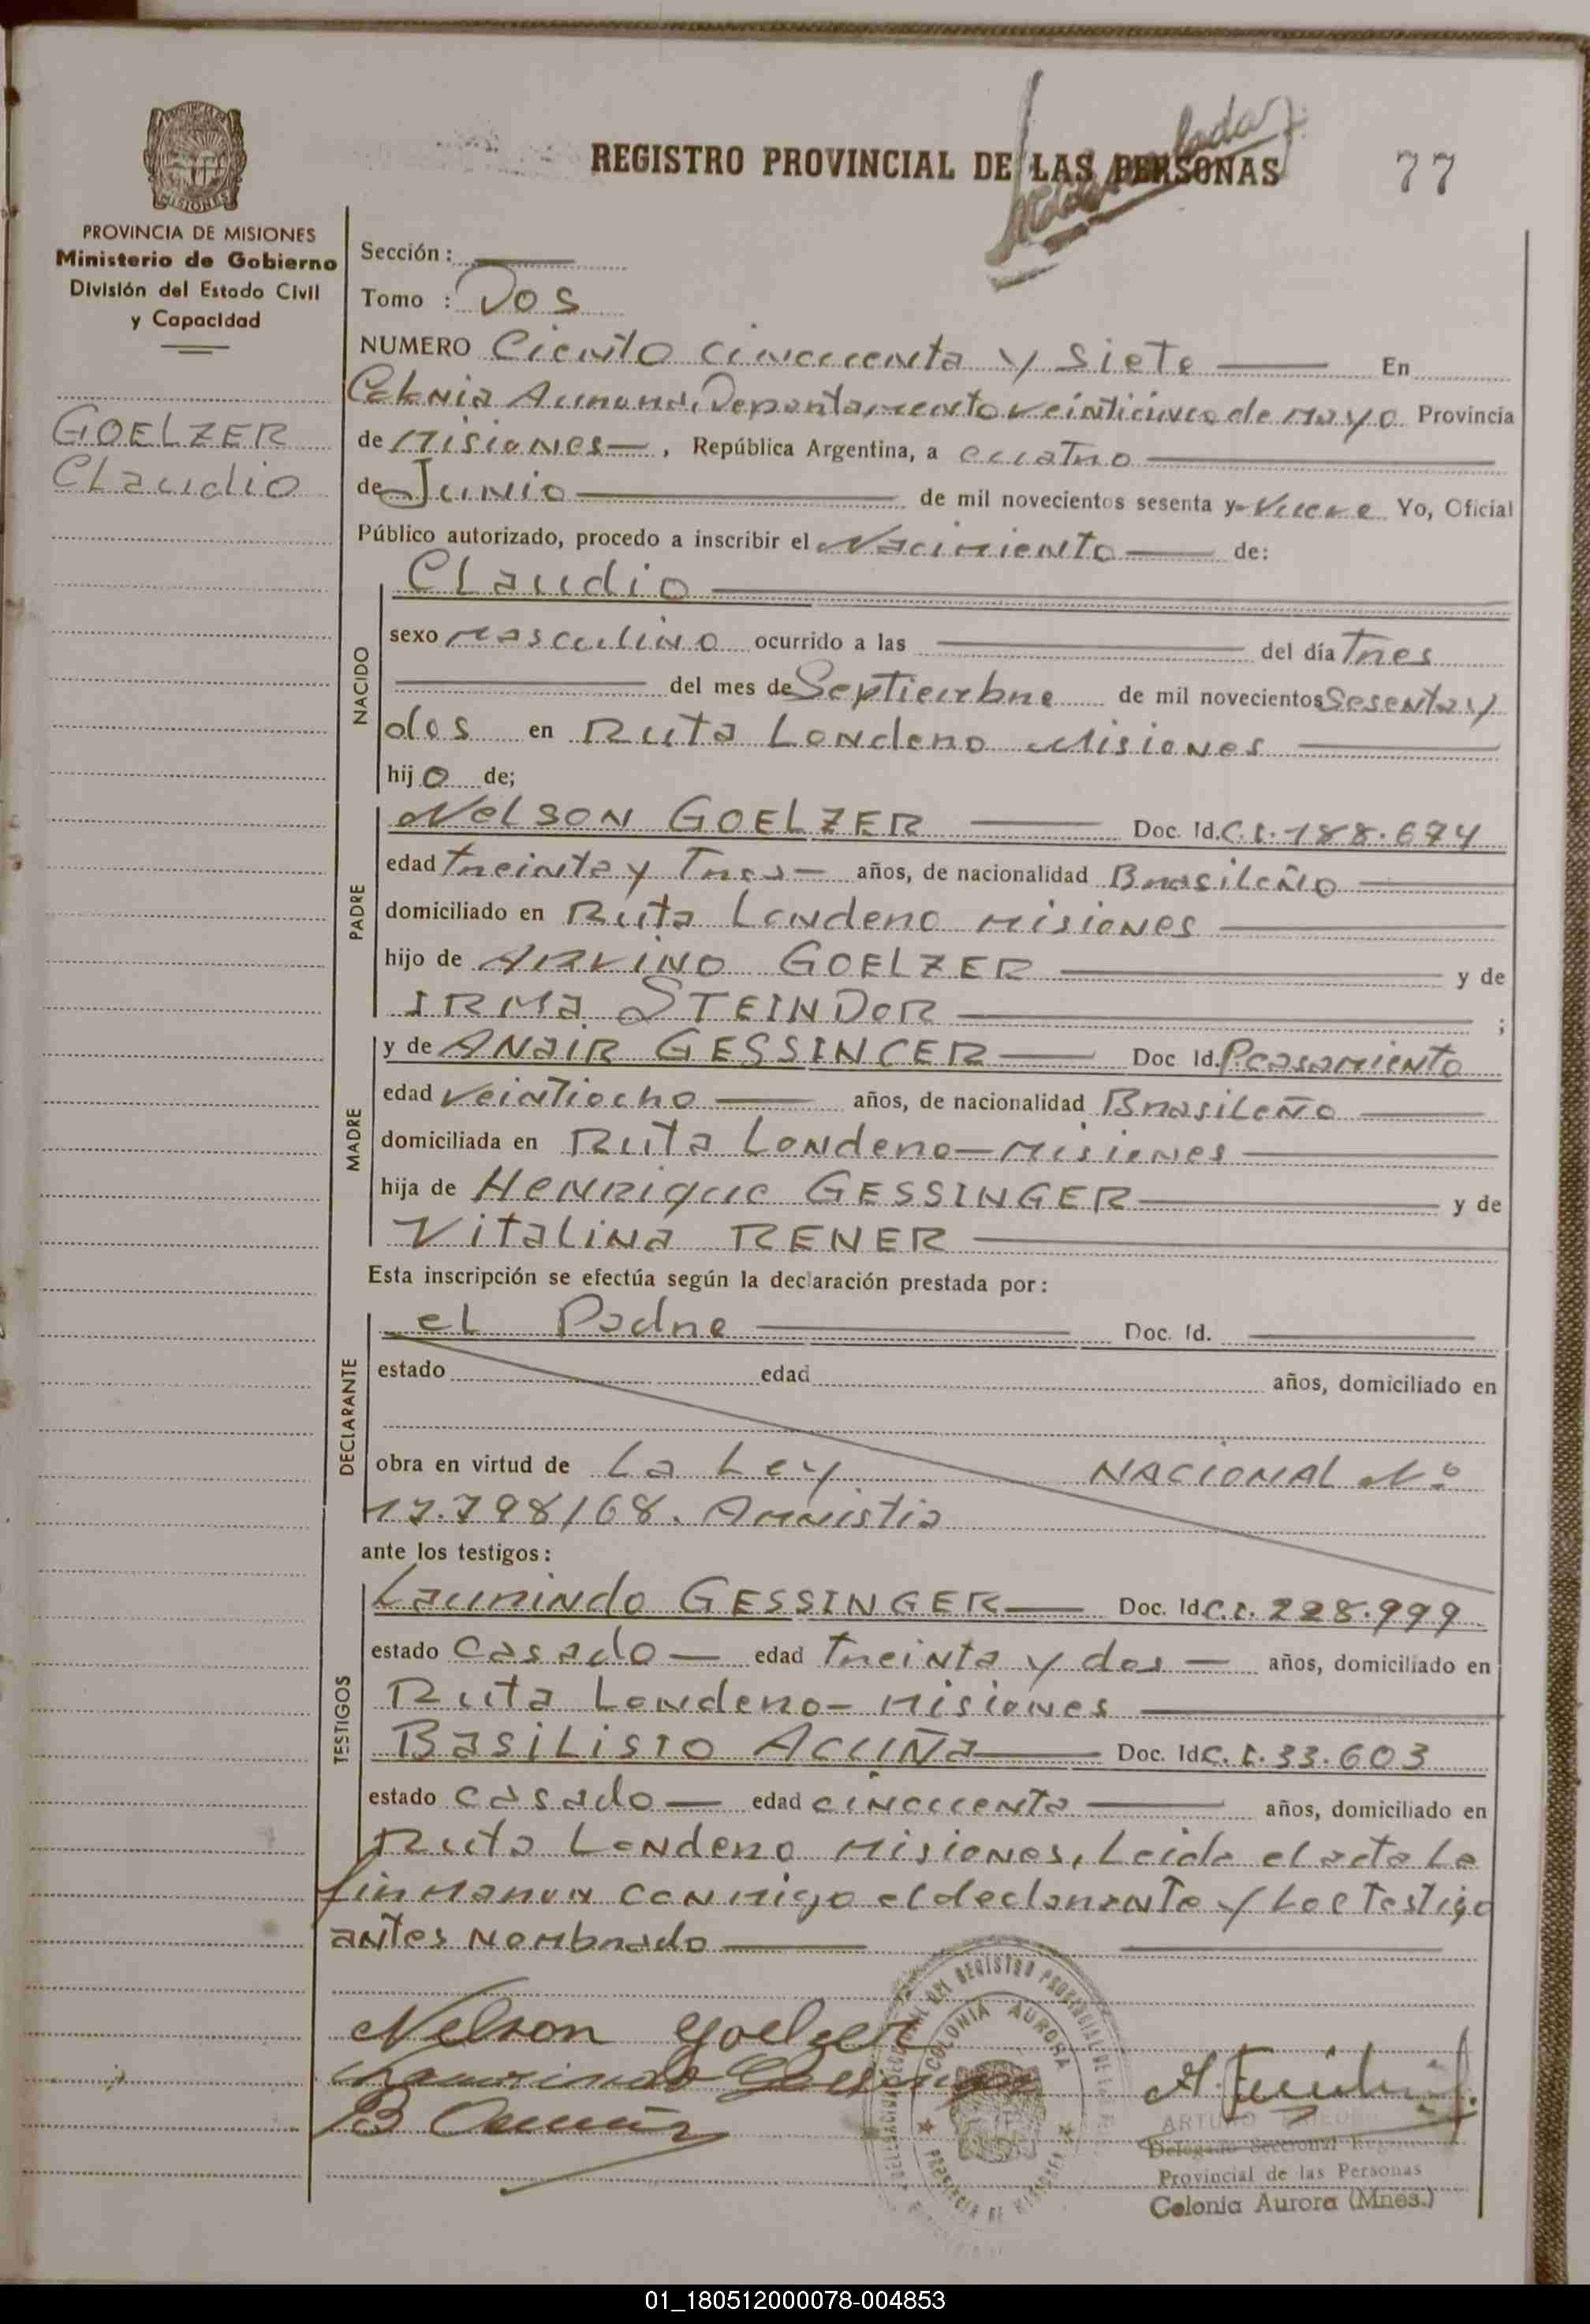 REGISTRO PROVINCIAL DE LAS PERSONAS
77
PROVINCIA DE MISIONES
Ministerio de Gobierno
División del Estado Civil
y Capacidad
GOELZER
Claudio
Sección :
Tomo : Dos
NUMERO Ciento cincuenta y siete En
Colonia Aurora, Departamento veinticinco de Mayo Provincia
de Misiones, República Argentina, a cuatro
de Junio de mil novecientos sesenta y Nueve Yo, Oficial
Público autorizado, procedo a inscribir el Nacimiento de:
NACIDO
Claudio
sexo masculino ocurrido a las del día Tres
del mes de Septiembre de mil novecientos Sesenta y
dos en Ruta Londero Misiones
hijo de;
PADRE
Nelson GOELZER Doc. Id. C.I. 188.674
edad Treinta y Tres años, de nacionalidad Brasileño
domiciliado en Ruta Londero Misiones
hijo de ARVINO GOELZER y de
IRMA STEINDOR ;
MADRE
y de ANAIR GESSINGER Doc Id. P.casamiento
edad veintiocho años, de nacionalidad Brasileño
domiciliada en Ruta Londero-Misiones
hija de Henrique GESSINGER y de
Vitalina RENER
Esta inscripción se efectúa según la declaración prestada por:
DECLARANTE
el Padre Doc. Id.
estado edad años, domiciliado en
obra en virtud de La Ley NACIONAL Nº
17.798/68. Amnistia
ante los testigos:
TESTIGOS
Laurindo GESSINGER Doc. Id C.I. 228.999
estado Casado edad Treinta y dos años, domiciliado en
Ruta Londero-Misiones
Basilisio ACUÑA Doc. Id C.I. 33.603
estado Casado edad cincuenta años, domiciliado en
Ruta Londero Misiones, Leida el acta la
firmaron conmigo el declarante y los Testigo
antes Nombrado
Nelson Goelzer
Laurindo Gessinger
B Acuña
COLONIA AURORA
PROVINCIA DE MISIONES
ARTURO
Delegado Seccional
Provincial de las Personas
Colonia Aurora (Mnes.)
01_180512000078-004853